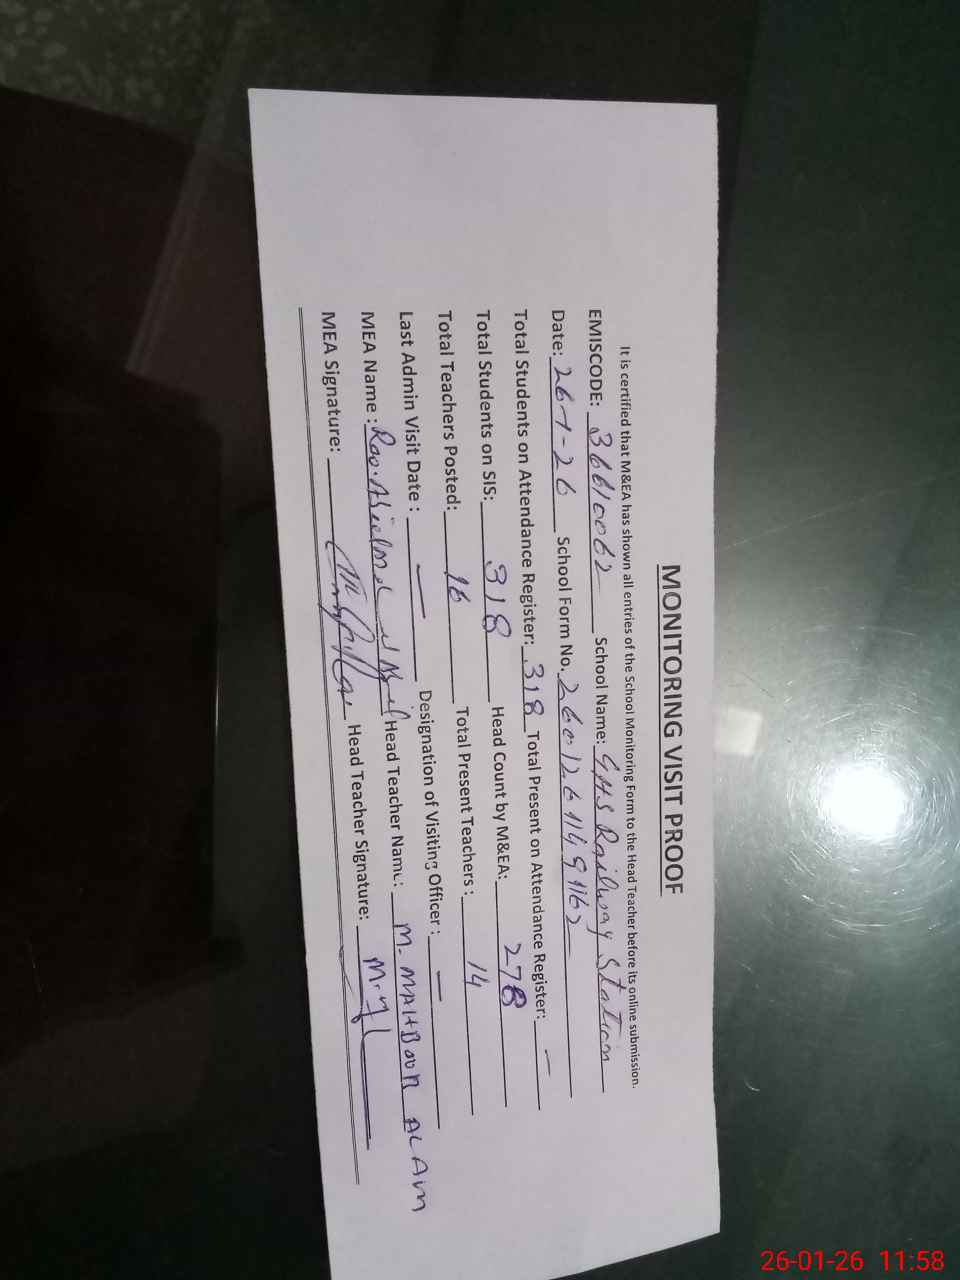 MONITORING VISIT PROOF
It is certified that M&EA has shown all entries of the School Monitoring Form to the Head Teacher before its online submission.
EMISCODE: 36610062 School Name: GHS Railway Station
Date: 26-1-26 School Form No. 
Total Students on Attendance Register: 318 Total Present on Attendance Register: —
Total Students on SIS: 318 Head Count by M&EA: 278
Total Teachers Posted: 16 Total Present Teachers : 14
Last Admin Visit Date : — Designation of Visiting Officer : —
MEA Name : Rao Head Teacher Name: M. MAHBOOB ALAM
MEA Signature: Head Teacher Signature:
26-01-26 11:58